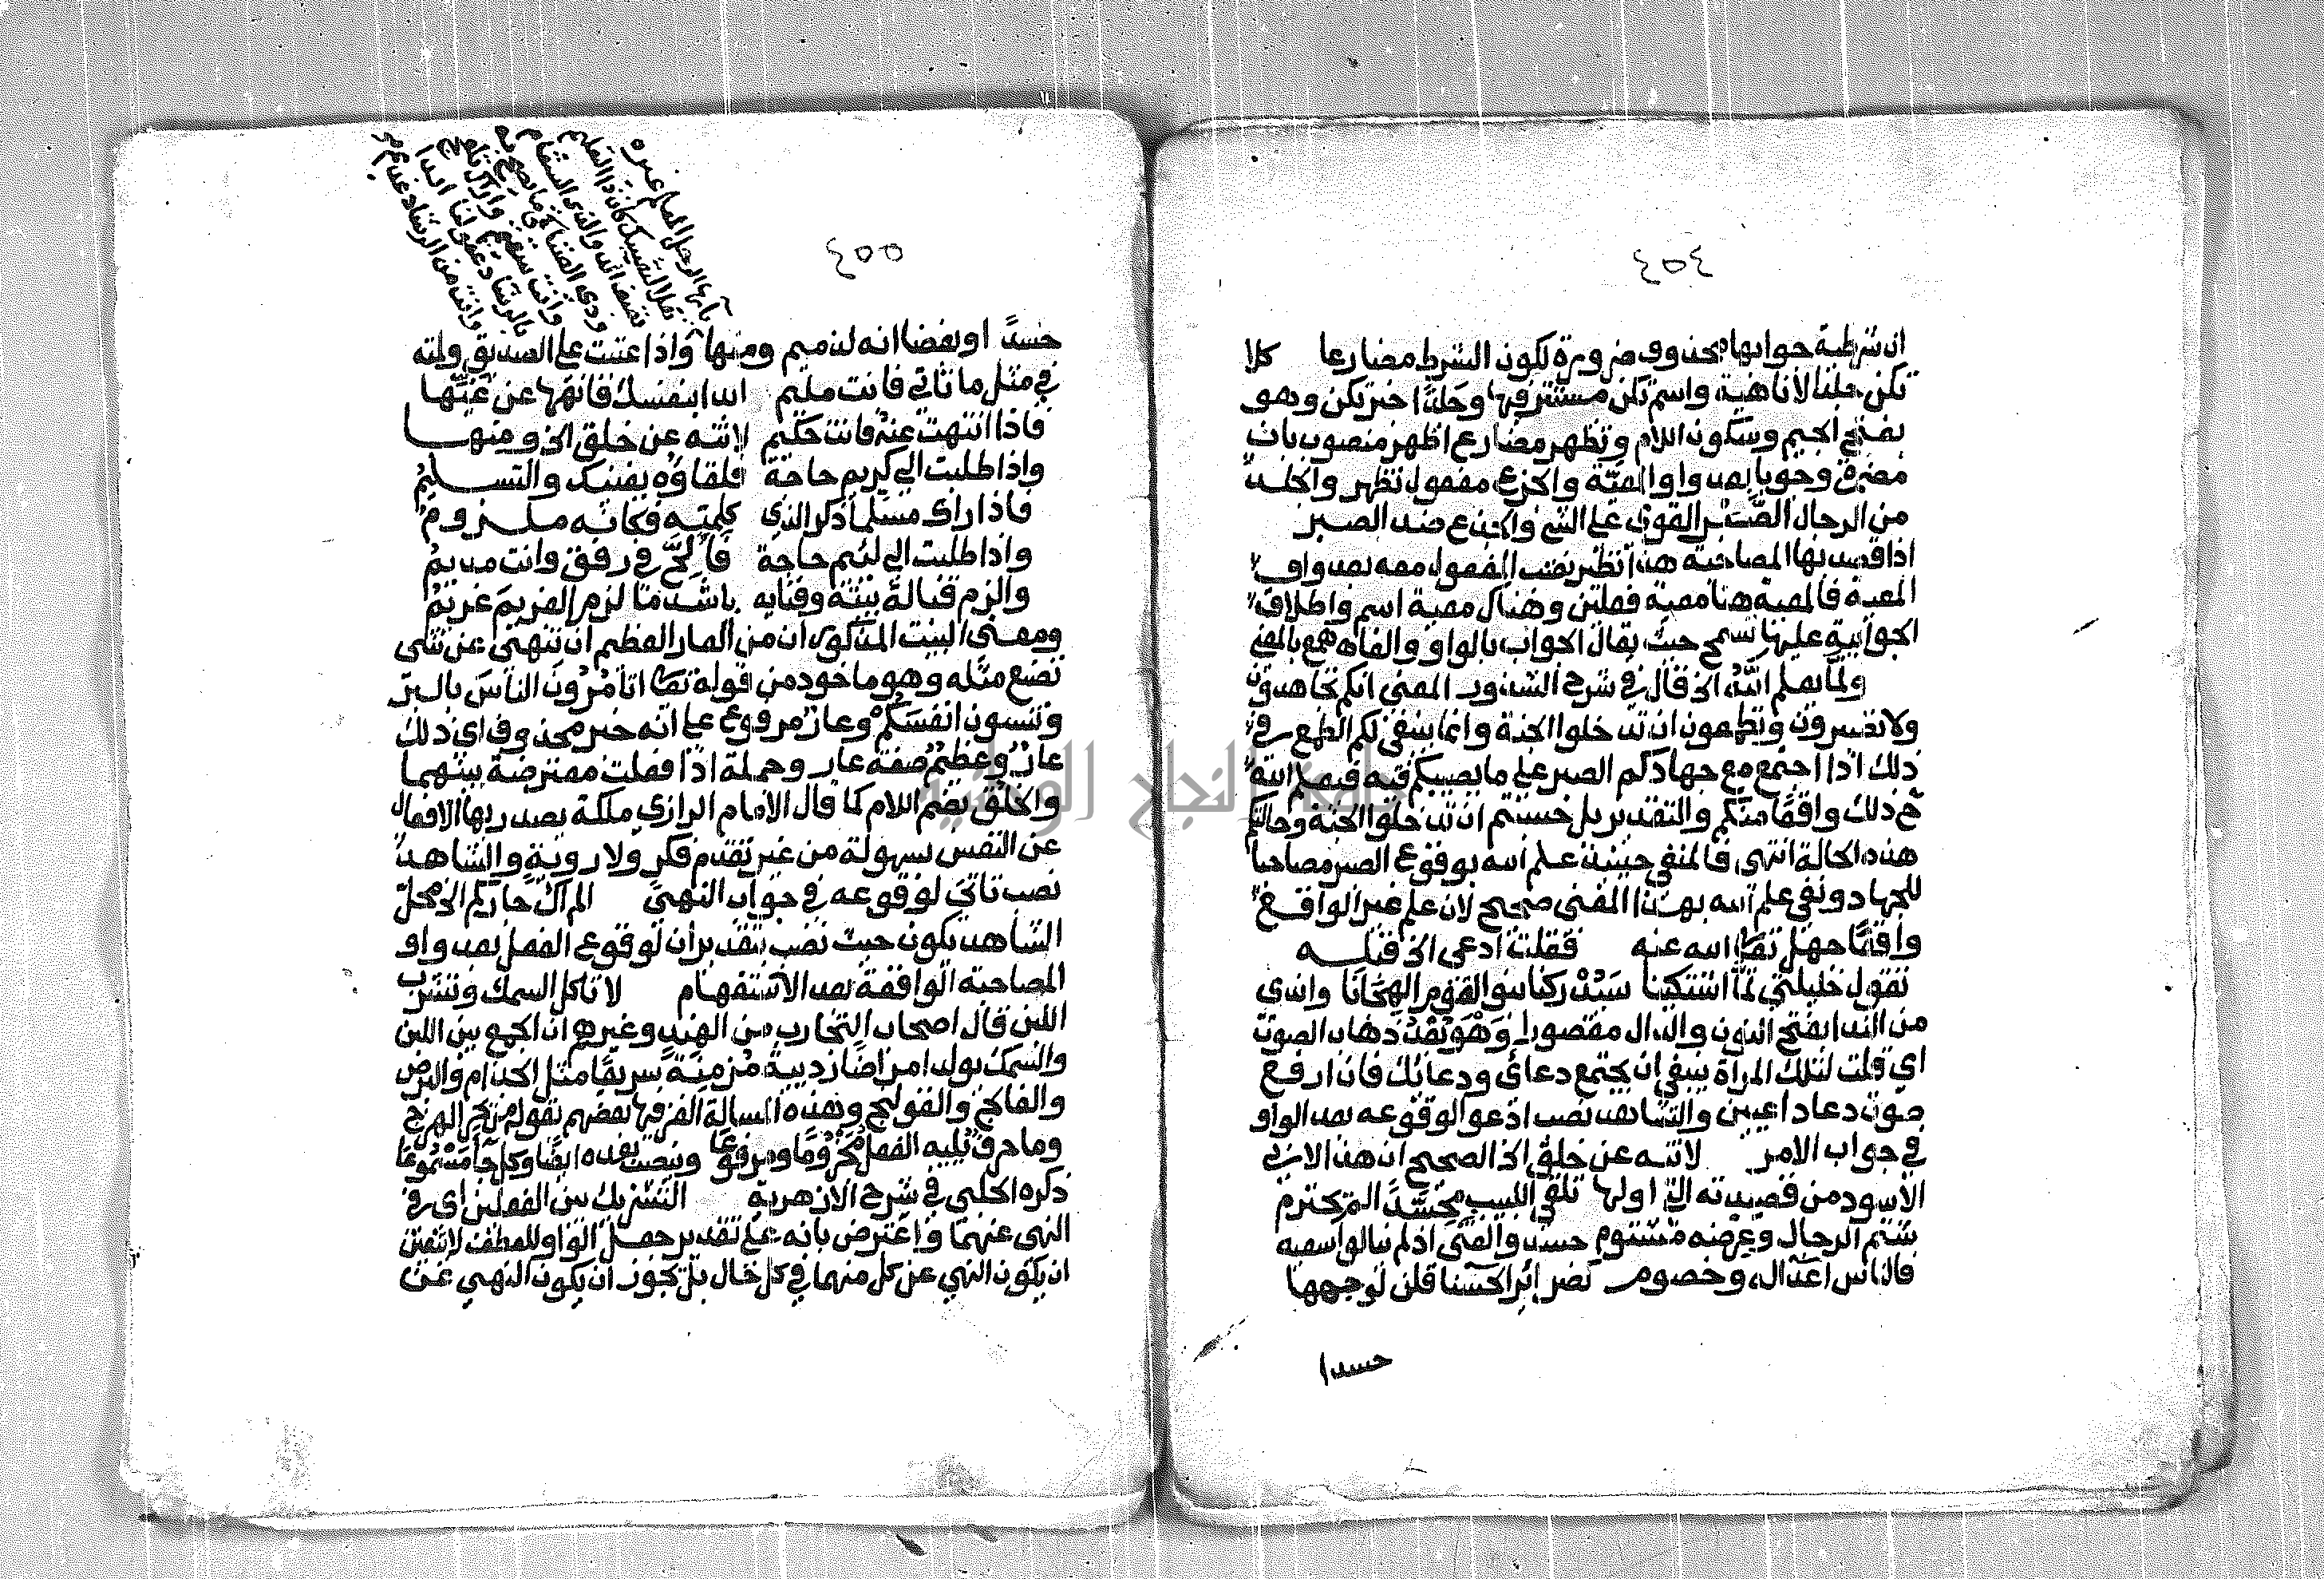 ٤٥٤
ان شرطية جوابها محذوف ضرورة لكون الشرط مضارعا كلا
تكن جلدا لا ناهية واسم تكن مستتر فيها وجلدا خبر تكن وهو
بفتح الجيم وسكون اللام وتظهر مضارع اظهر منصوب بان
مضمرة وجوبا بعد واو المعية والجزع مفعول تظهر والجلد
من الرجال الصَّبر القوي على الشئ والجزع ضد الصبر
اذا قصد بها المصاحبة هذا نظير نصب المفعول معه بعد واو
المعية فالمعية هنا معية فعلين وهناك معية اسم واطلاق
الجوابية عليها تسمح حيث يقال الجواب بالواو والفاء
ولما يعلم الله الخ قال في شرح الشذور المعنى انكم تجاهدون
ولا تصبرون وتطمعون ان تدخلوا الجنة وانما ينبغي لكم الطمع في
ذلك اذا اجتمع مع جهادكم الصبر على ما يصيبكم فيه فيعلم الله
ح ذلك واقعا منكم والتقدير بل حسبتم ان تدخلوا الجنة وحالتكم
هذه الحالة انتهى فالمنفي حينئذ علم الله بوقوع الصبر مصاحبا
للجهاد ونفي علم الله بهذا المعنى صحيح لان علم غير الواقع
واقعًا جهل تعالى الله عنه فقلت ادعى الخ قبله
تقول خليلتي لمّا اشتكينا سيدركنا بنو القوم الهجانا واندى
من الندا بفتح النون والدال مقصورا وهو بُعْد ذهاب الصوت
اي قلت لتلك المراة ينبغي ان يجتمع دعائي ودعائك فان ارفع
صوت دعا داعيين والشاهد نصب ادعو لوقوعه بعد الواو
في جواب الامر لا تنه عن خلق الخ الصحيح ان هذا لابي
الاسود من قصيدته التي اولها تلقى اللبيب محسّدًا لم يجترم
شتم الرجال وعرضه مشتوم حسدوا الفتى اذ لم ينالوا سعيه
فالناس اعداء له وخصوم كضرائر الحسنا قلن لوجهها
حسدا
٤٥٥
يا ايها الرجل المعلم غيره
هلا لنفسك كان ذا التعليم
تصف الدوا لذي السقام
وذي الضنا كيما يصح به
وانت سقيم واراك تلقح
بالرشاد عقولنا ابدا
وانت من الرشاد عديم
حسدًا وبغضا انه لذميم ومنها واذا عتبت على الصديق ولمته
في مثل ما تاتي فانت مليم ابدا بنفسك فانهها عن غيّها
فاذا انتهت عنه فانت حكيم لا تنه عن خلق الخ ومنها
واذا طلبت الى كريم حاجة فلقاؤه يغنيك والتسليم
فاذا راك مسلّما ذكر الذي كلمته فكانه ملزوم
واذا طلبت الى لئيم حاجة فألحّ في رفق وانت مديم
والزم قبالة بيته وفنائه باشد ما لزم الغريمَ غريم
ومعنى البيت المذكور ان من العار العظيم ان تنهى عن شئ
تصنع مثله وهو ماخوذ من قوله تعالى اتأمُرُونَ الناسَ بالبرّ
وتنسون انفسكم وعارٌ مرفوع على انه خبر محذوف اي ذلك
عارٌ وعظيمٌ صفة عار وجملة اذا فعلت معترضة بينهما
والخلق بضم اللام كما قال الامام الرازي ملكة يصدر بها الافعال
عن النفس بسهولة من غير تقدم فكر ولا روية والشاهد
نصب تاتي لوقوعه في جواب النهي الم اك جاركم الخ محل
الشاهد يكون حيث نصب بتقدير ان لوقوع الفعل بعد واو
المصاحبة الواقعة بعد الاستفهام لا تاكل السمك وتشرب
اللبن قال اصحاب التجارب من الهند وغيرهم ان الجمع بين اللبن
والسمك يولد امراضًا رديية مُزمِنَةً سريعًا مثل الجذام والبرص
والفالج والقولنج وبهذه المسالة الغز فيها بعضهم بقوله من بحر الهزج
وما حرف يليه الفعل مجْزومًا ومرفوعًا وينصب بعده ايضا وكل جا مسْمُوعًا
ذكره الحلبي في شرح الازهرية التشريك بين الفعلين اي في
النهي عنهما واعترض بانه على تقدير جعل الواو للعطف لا يتعين
ان يكون النهي عن كل منهما في كل حال بل يجوز ان يكون النهي عن
جامعة النجاح الوطنية